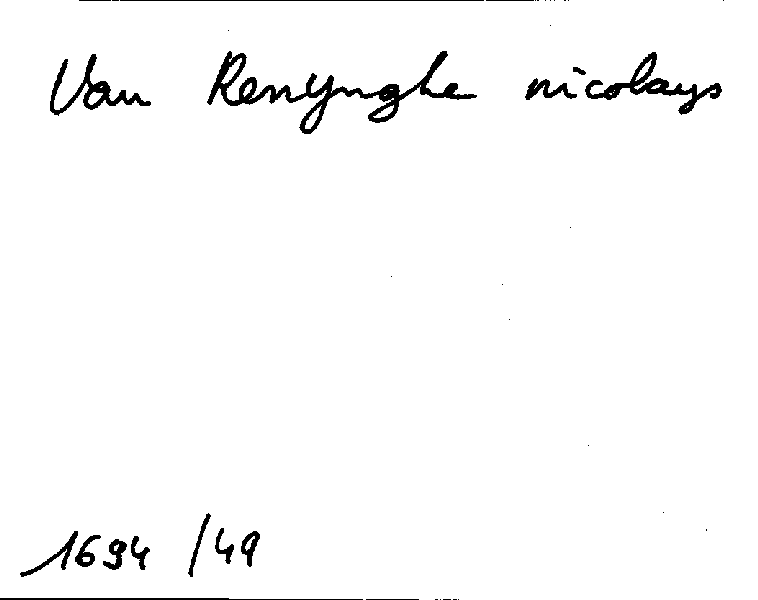 Van Renynghe nicolays
1694 /49